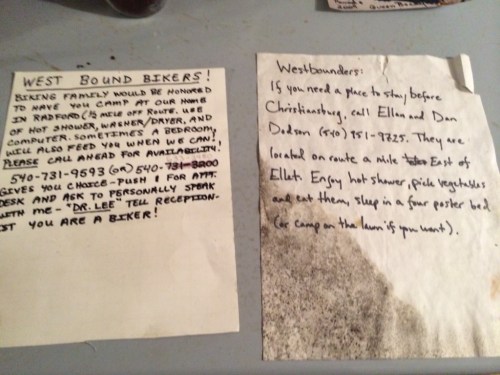 WEST BOUND BIKERS!
BIKING FAMILY WOULD BE HONORED
TO HAVE YOU CAMP AT OUR HOME
IN RADFORD (½ MILE OFF ROUTE. USE
OF HOT SHOWER, WASHER/DRYER, AND
COMPUTER. SOMETIMES A BEDROOM,
WILL ALSO FEED YOU WHEN WE CAN!
PLEASE CALL AHEAD FOR AVAILABILITY!
540-731-9593 (OR) 540-731-3200
GIVES YOU CHOICE-PUSH 1 FOR APPT.
DESK AND ASK TO PERSONALLY SPEAK
WITH ME-"DR. LEE" TELL RECEPTION-
IST YOU ARE A BIKER!
Westbounders:
If you need a place to stay before
Christiansburg, call Ellan and Dan
Dodson (540) 951-9725. They are
located on route a mile East of
Ellet. Enjoy hot shower, pick vegetables
and eat them, sleep in a four poster bed
(or camp on the lawn if you want).